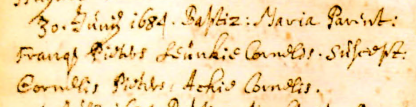 30. Junij 1684. Baptiz: Maria Parent:
Franqs Pieters Leunkie Cornelds. Suscept:
Cornelis Pieters, Aekie Cornelis.